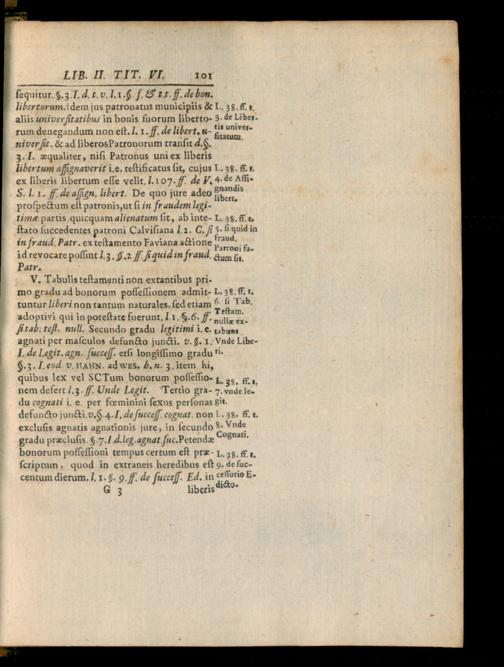 LIB. II. TIT. VI. 101
sequitur. §. 3. I. d. t. v. l. 1. §. f. & t.t. ff. de bon.
libertorum. Idem jus patronatus municipiis &
aliis universitatibus in bonis suorum liberto-
rum denegandum non est. l. 1. ff. de libert. u-
niversit. & ad liberos Patronorum transit d. §.
3. I. æqualiter, nisi Patronus uni ex liberis
libertum assignaverit i.e. testificatus sit, cujus
ex liberis libertum esse velit. l. 107. ff. de V.
S. l. 1. ff. de assign. libert. De quo jure adeo
prospectum est patronis, ut si in fraudem legi-
timæ partis quicquam alienatum sit, ab inte-
stato succedentes patroni Calvisiana l. 2. C. si
in fraud. Patr. ex testamento Faviana actione
id revocare possint l. 3. §. 2 ff. si quid in fraud.
Patr.
V. Tabulis testamenti non extantibus pri-
mo gradu ad bonorum possessionem admit-
tuntur liberi non tantum naturales, sed etiam
adoptivi qui in potestate fuerunt. l. 1. §. 6. ff.
si tab. test. null. Secundo gradu legitimi i. e.
agnati per masculos defuncto juncti. v. §. 1.
I. de Legit. agn. success. etsi longissimo gradu
§. 3. I. eod v. HAHN. ad WES. h. n. 3. item hi,
quibus lex vel SCTum bonorum possessio-
nem defert l. 3. ff. Unde Legit. Tertio gra-
du cognati i. e. per fœminini sexus personas
defuncto juncti. v. §. 4. I. de success. cognat. non
exclusis agnatis agnationis jure, in secundo
gradu præclusis. §. 7. I d. leg. agnat. suc. Petendæ
bonorum possessioni tempus certum est præ-
scriptum, quod in extraneis heredibus est
centum dierum. l. 1. §. 9. ff. de success. Ed. in
G 3 liberis
L. 38. ff. t.
3. de Liber-
tis univer-
sitatum.
L. 38. ff. t.
4. de Assi-
gnandis
libert.
L. 38. ff. t.
5. si quid in
fraud.
Patroni fa-
ctum sit.
L. 38. ff. t.
6. si Tab.
Testam.
nullæ ex-
tabunt
Vnde Libe-
ri.
L. 38. ff. t.
7. vnde le-
git.
L. 38. ff. t.
8. Vnde
Cognati.
L. 38. ff. t.
9. de suc-
cessorio E-
dicto.